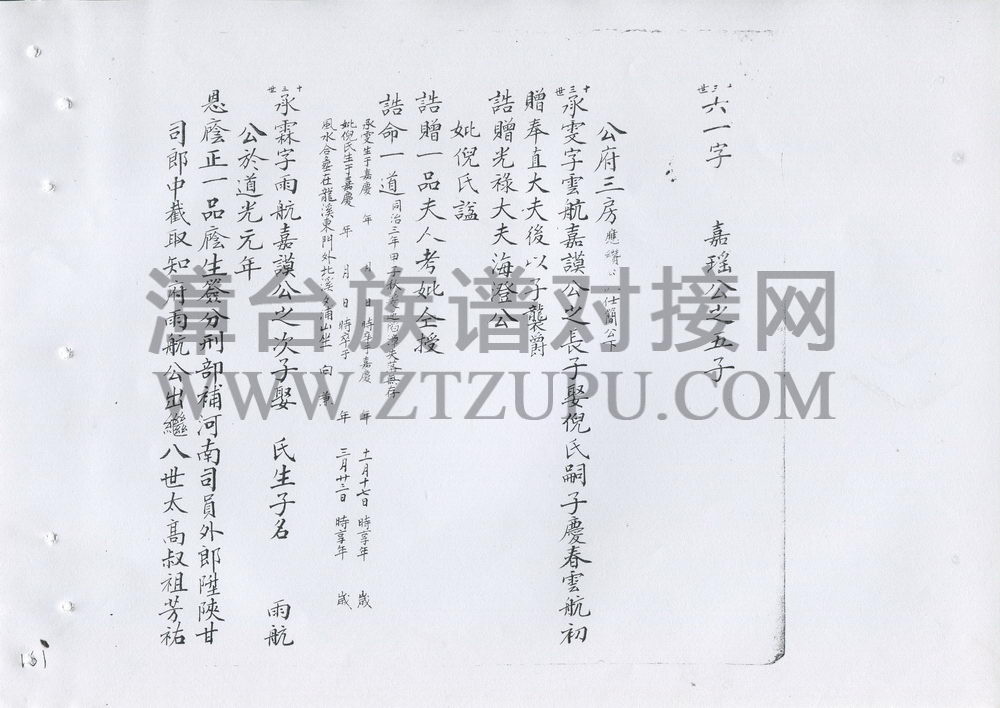 十三世
六一字 嘉瑶公之五子
公府三房
十三世
承雯字雲航嘉謨公之長子娶倪氏嗣子慶春雲航初
贈奉直大夫後以子襲爵
誥贈光祿大夫海澄公
妣倪氏謚
誥贈一品夫人考妣仝授
誥命一道
同治三年
承雯生于嘉慶 年 月 日 時卒于嘉慶 年 十一月十七日 時享年 歲
妣倪氏生于嘉慶 年 月 日 時卒于 年 三月廿三日 時享年 歲
風水合葬在龍溪東門外北溪 浦山坐 向兼
十三世
承霖字雨航嘉謨公之次子娶 氏生子名 雨航
公於道光元年
恩廕正一品廕生簽分刑部補河南司員外郎陞陝甘
司郎中截取知府雨航公出繼八世太高叔祖芳祐
181
漳台族谱对接网
WWW.ZTZUPU.COM